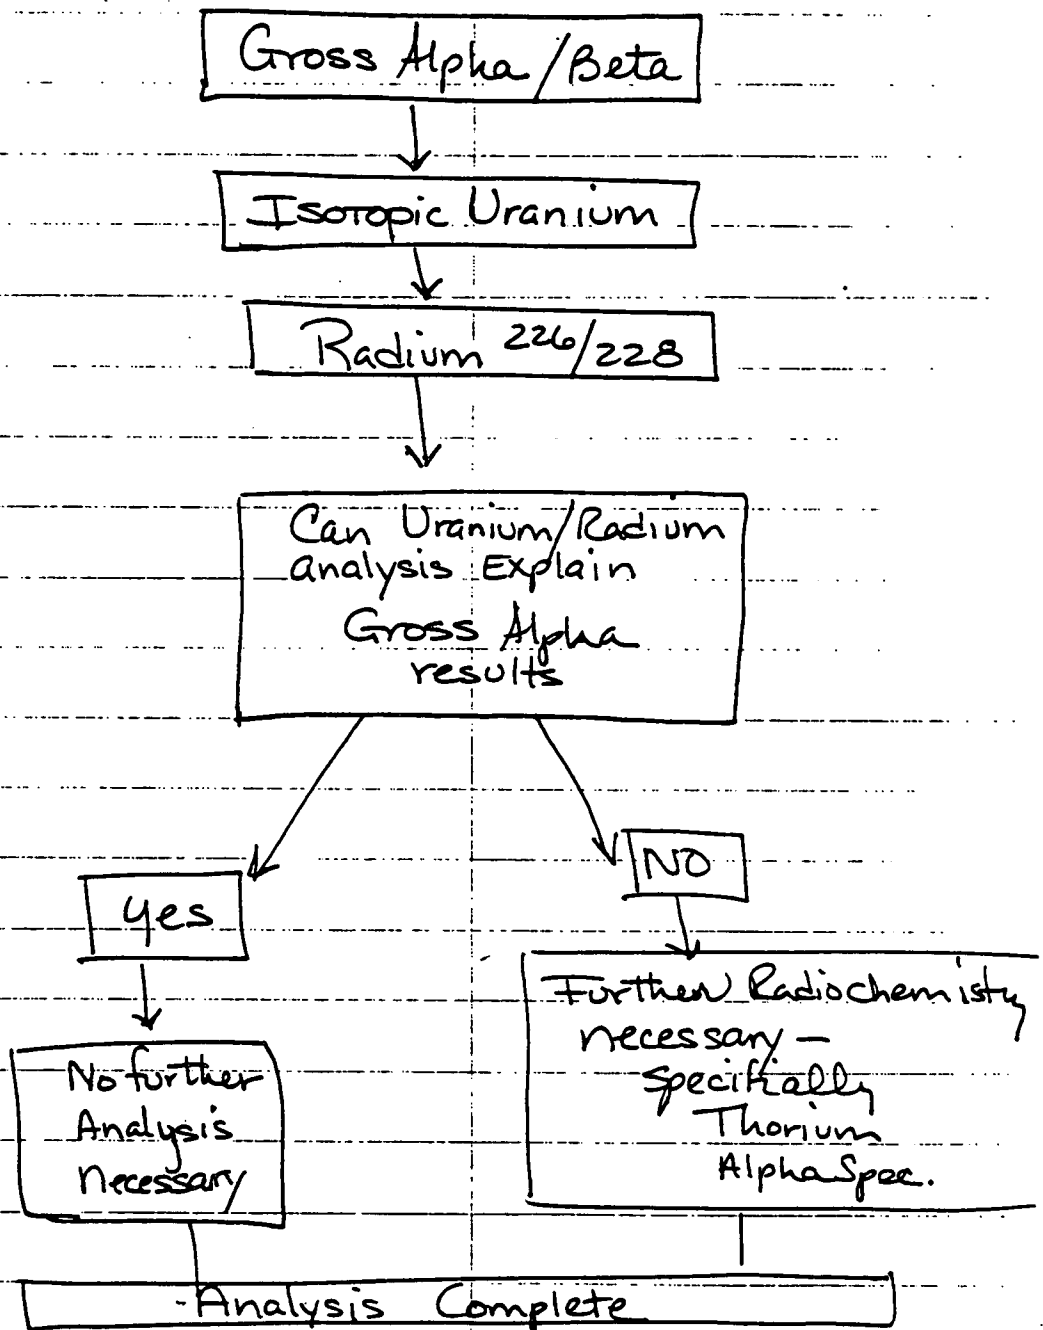 Gross Alpha/Beta
Isotopic Uranium
Radium 226/228
Can Uranium/Radium
analysis Explain
Gross Alpha
results
Yes
NO
No further
Analysis
Necessary
Further Radiochemistry
necessary –
specifically
Thorium
Alpha Spec.
Analysis Complete